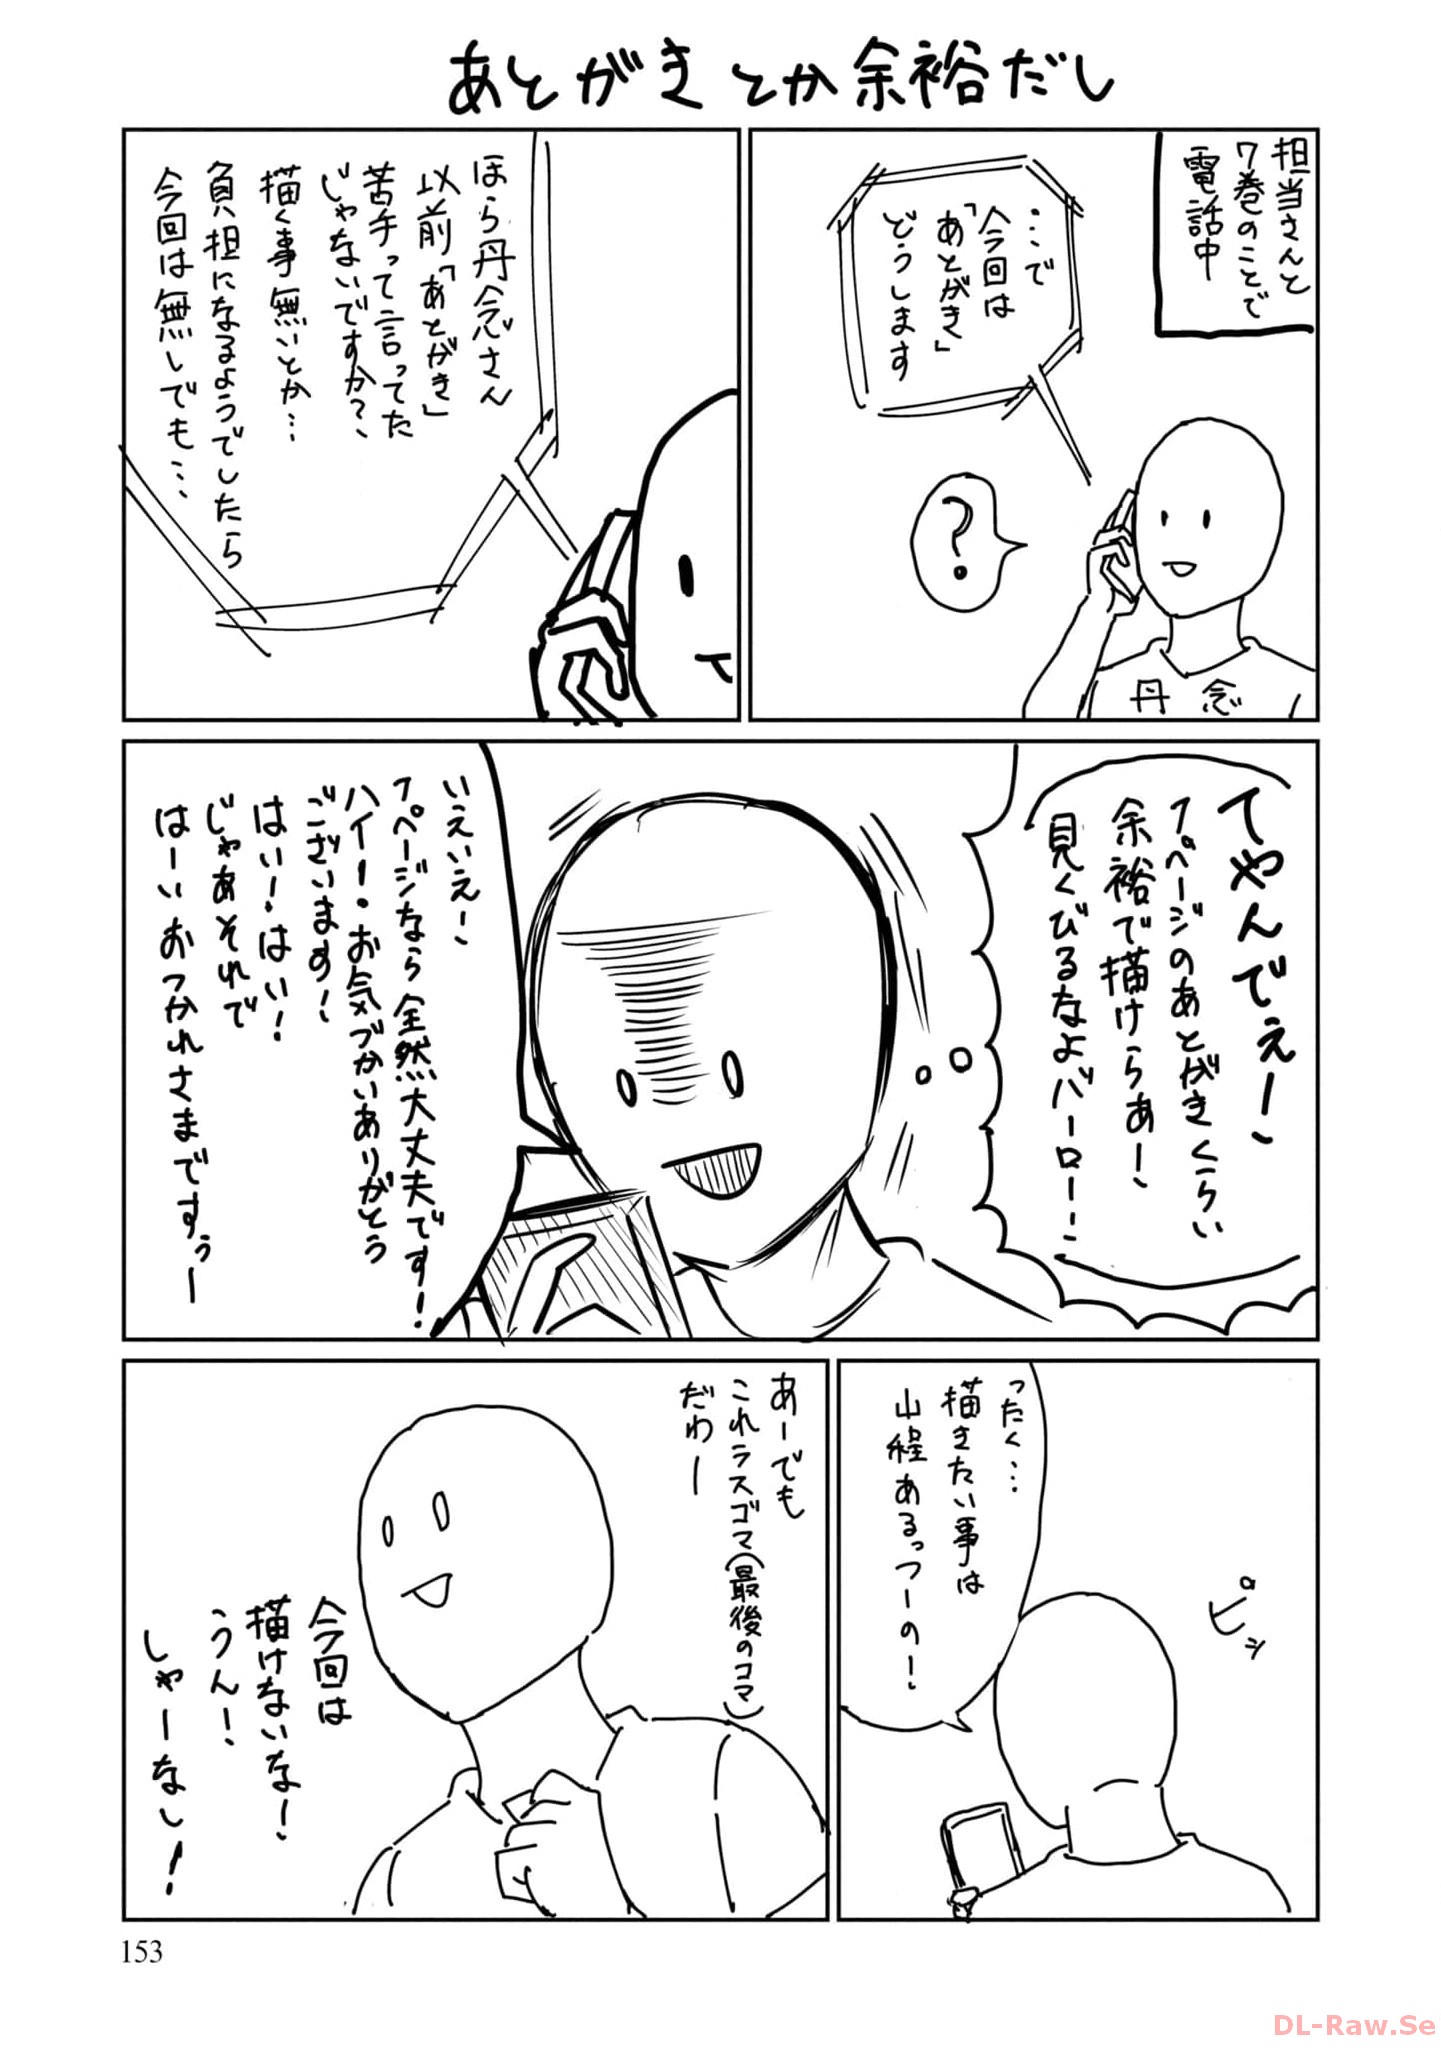 あとがきとか余裕だし
担当さんと
7巻のことで
電話中
…で
今回は
「あとがき」
どうします
?
丹念
ほら丹念さん
以前「あとがき」
苦手って言ってた
じゃないですか?、
描く事無いとか…
負担になるようでしたら
今回は無しでも…
てやんでぇー!
1ページのあとがきくらい
余裕で描けらあー!
見くびるなよバーロー!
いえいえー!
1ページなら全然大丈夫です!
ハイー!お気づかいありがとう
ございます!
はい!はい!
じゃあそれで
はーいおつかれさまですぅー
ったく…
描きたい事は
山程あるっつーの!
ピッ
あーでも
これラスゴマ(最後のコマ)
だわー
今回は
描けないな!
うん!
しゃーなし!
153
DL-Raw.Se